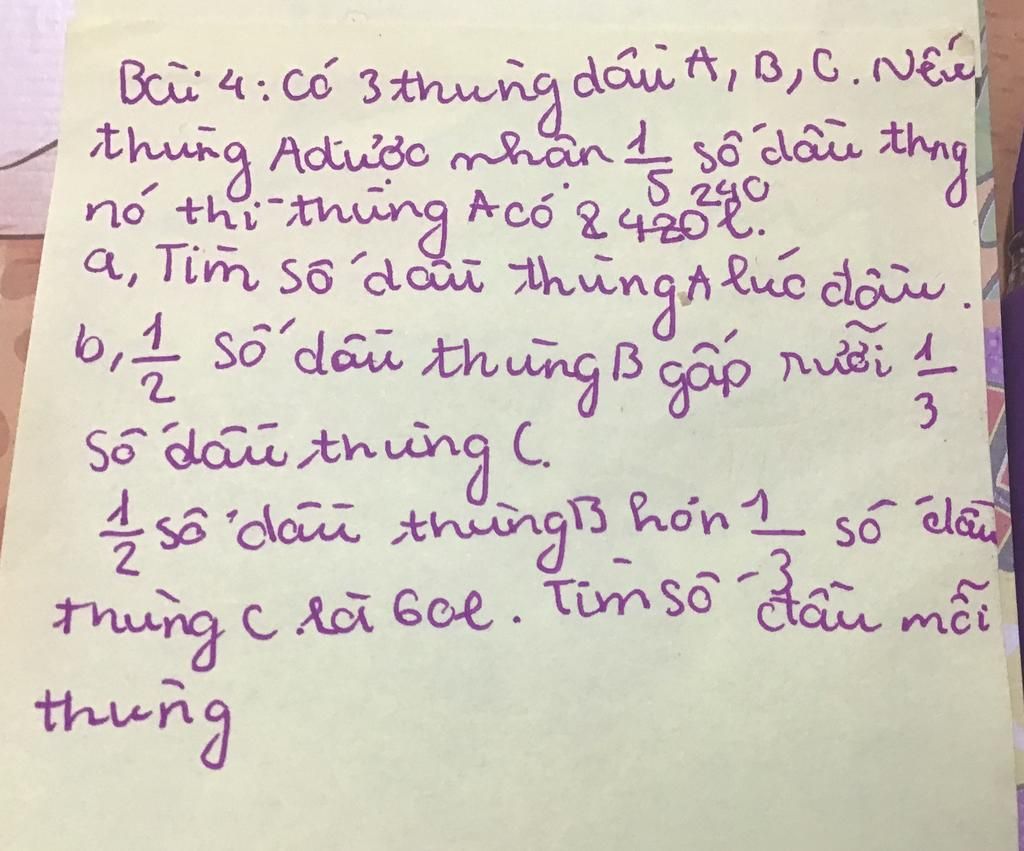 Bài 4: Có 3 thùng dầu A, B, C. Nếu
thùng A được nhận 1/5 số dầu thng
nó thì thùng A có 240 l.
a, Tìm số dầu thùng A lúc đầu.
b, 1/2 số dầu thùng B gấp rưỡi 1/3
số dầu thùng C.
1/2 số dầu thùng B hơn 1/3 số dầu
thùng C là 60l. Tìm số dầu mỗi
thùng